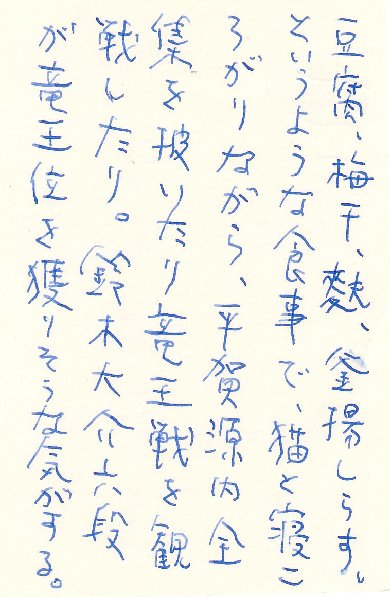 豆腐、梅干、麩、釜揚しらす、
というような食事で、猫と寝こ
ろがりながら、平賀源内全
集を披いたり竜王戦を観
戦したり。鈴木大介六段
が竜王位を獲りそうな気がする。